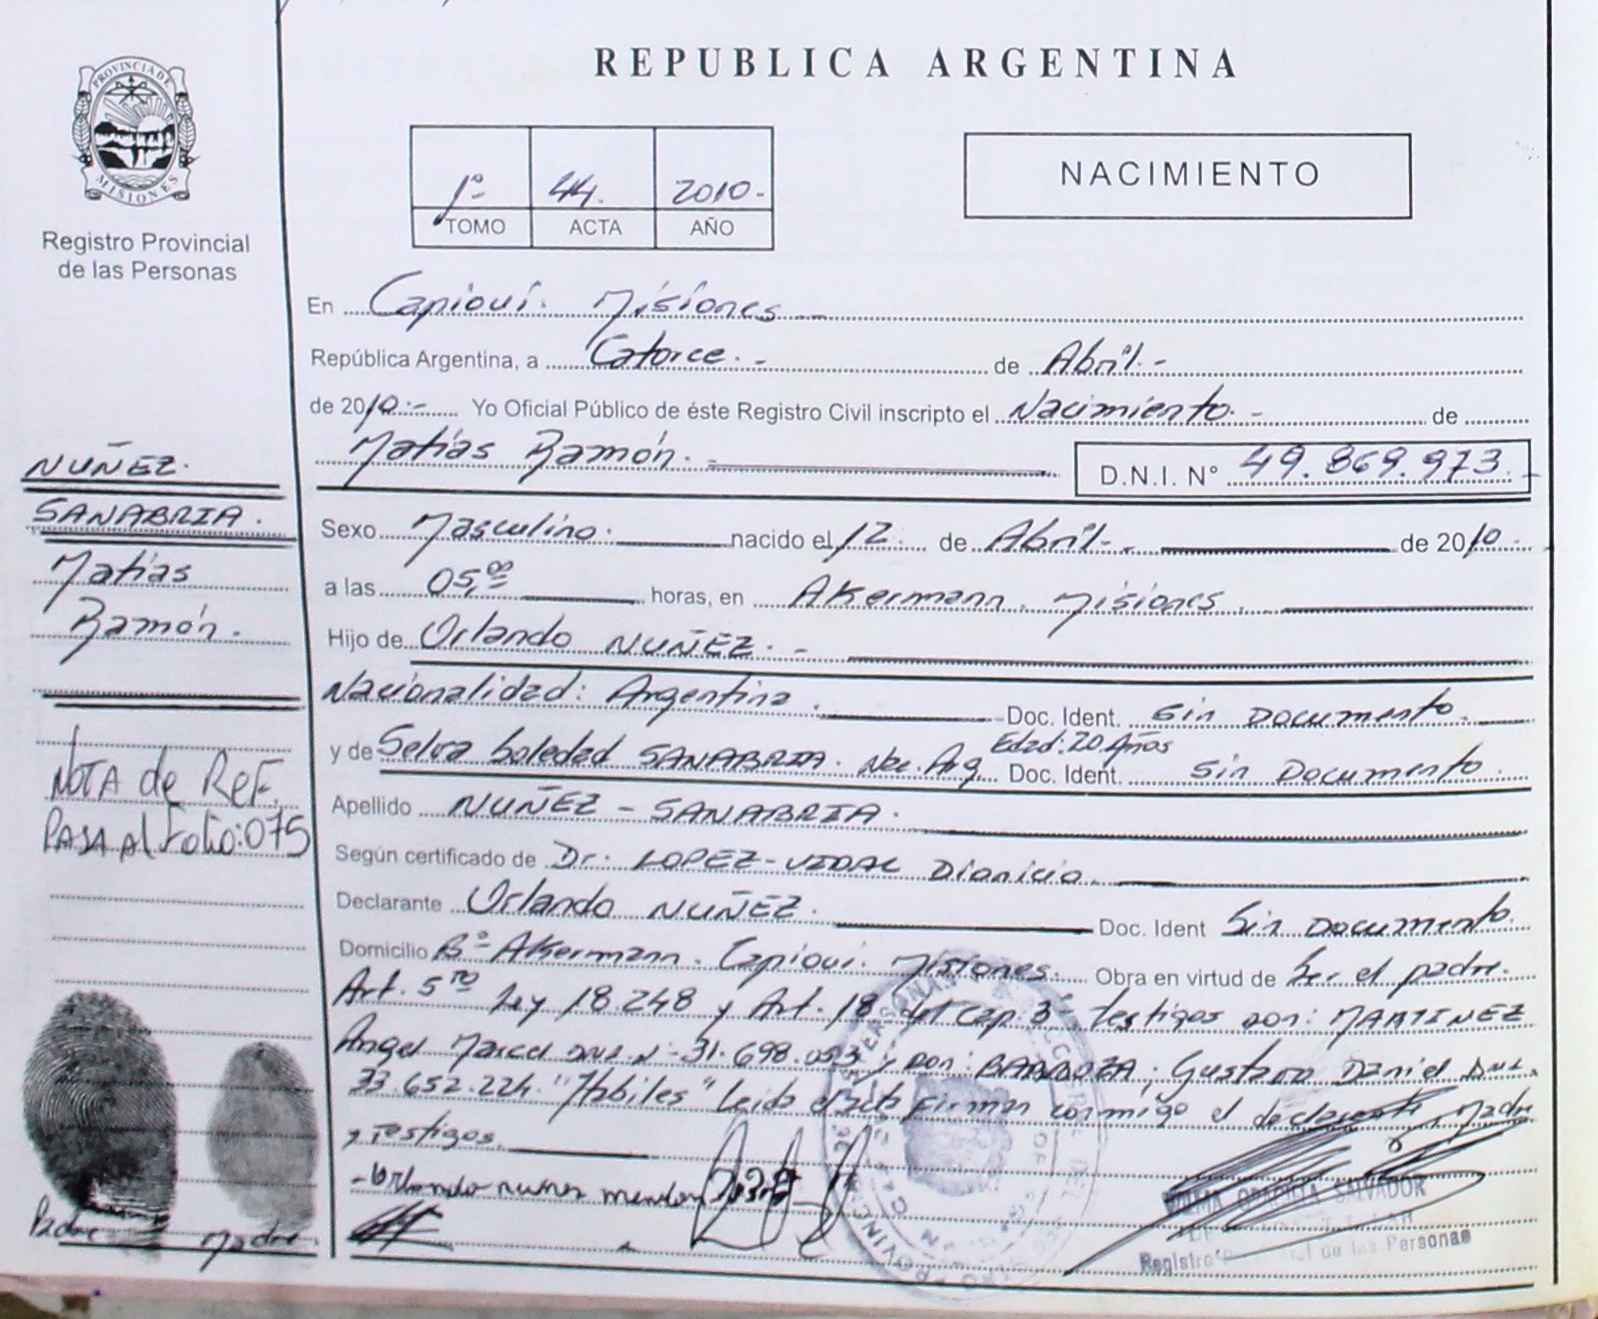 PROVINCIA DE
MISIONES
Registro Provincial
de las Personas
NUÑEZ.
SANABRIA.
Matías
Ramón.
NOTA de REF.
PASA Al Folio: 075
Padre Madre
REPUBLICA ARGENTINA
1º 44. 2010.-
TOMO ACTA AÑO
NACIMIENTO
En Capioví. Misiones
República Argentina, a Catorce.- de Abril.-
de 2010.- Yo Oficial Público de éste Registro Civil inscripto el Nacimiento.- de
Matías Ramón. D.N.I. N° 49.869.973.-
Sexo Masculino. nacido el 12 de Abril.- de 2010.-
a las 05,00 horas, en Akermann. Misiones.
Hijo de Orlando NUÑEZ.-
Nacionalidad: Argentina. Doc. Ident. Sin Documento.
y de Selva Soledad SANABRIA. Nac. Arg. Edad: 20 Años Doc. Ident. Sin Documento.
Apellido NUÑEZ - SANABRIA.
Según certificado de Dr. LOPEZ-VIDAL Dionicio.
Declarante Orlando NUÑEZ. Doc. Ident Sin Documento.
Domicilio Bº Akermann. Capioví. Misiones. Obra en virtud de Ser el padre.
Art. 5to Ley 18.248 y Art. 18 del Cap. 3º testigos son: MARTINEZ
Angel Marcel DNI. N: 31.698.053 y Don: BARBOZA, Gustavo Daniel DNI.
33.652.224. "Hábiles" Leída el acta firman conmigo el declarante, madre
y Testigos.
-Orlando nunes
SALVADOR
Registro Provincial de las Personas